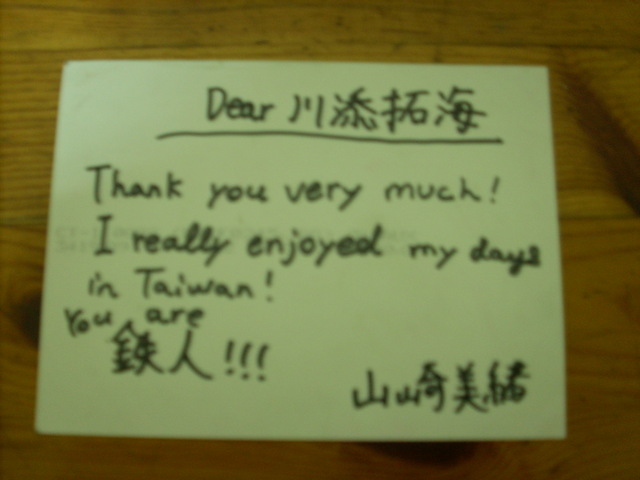 Dear 川添拓海
Thank you very much!
I really enjoyed my days
in Taiwan!
You are
鉄人!!!
山崎美緒